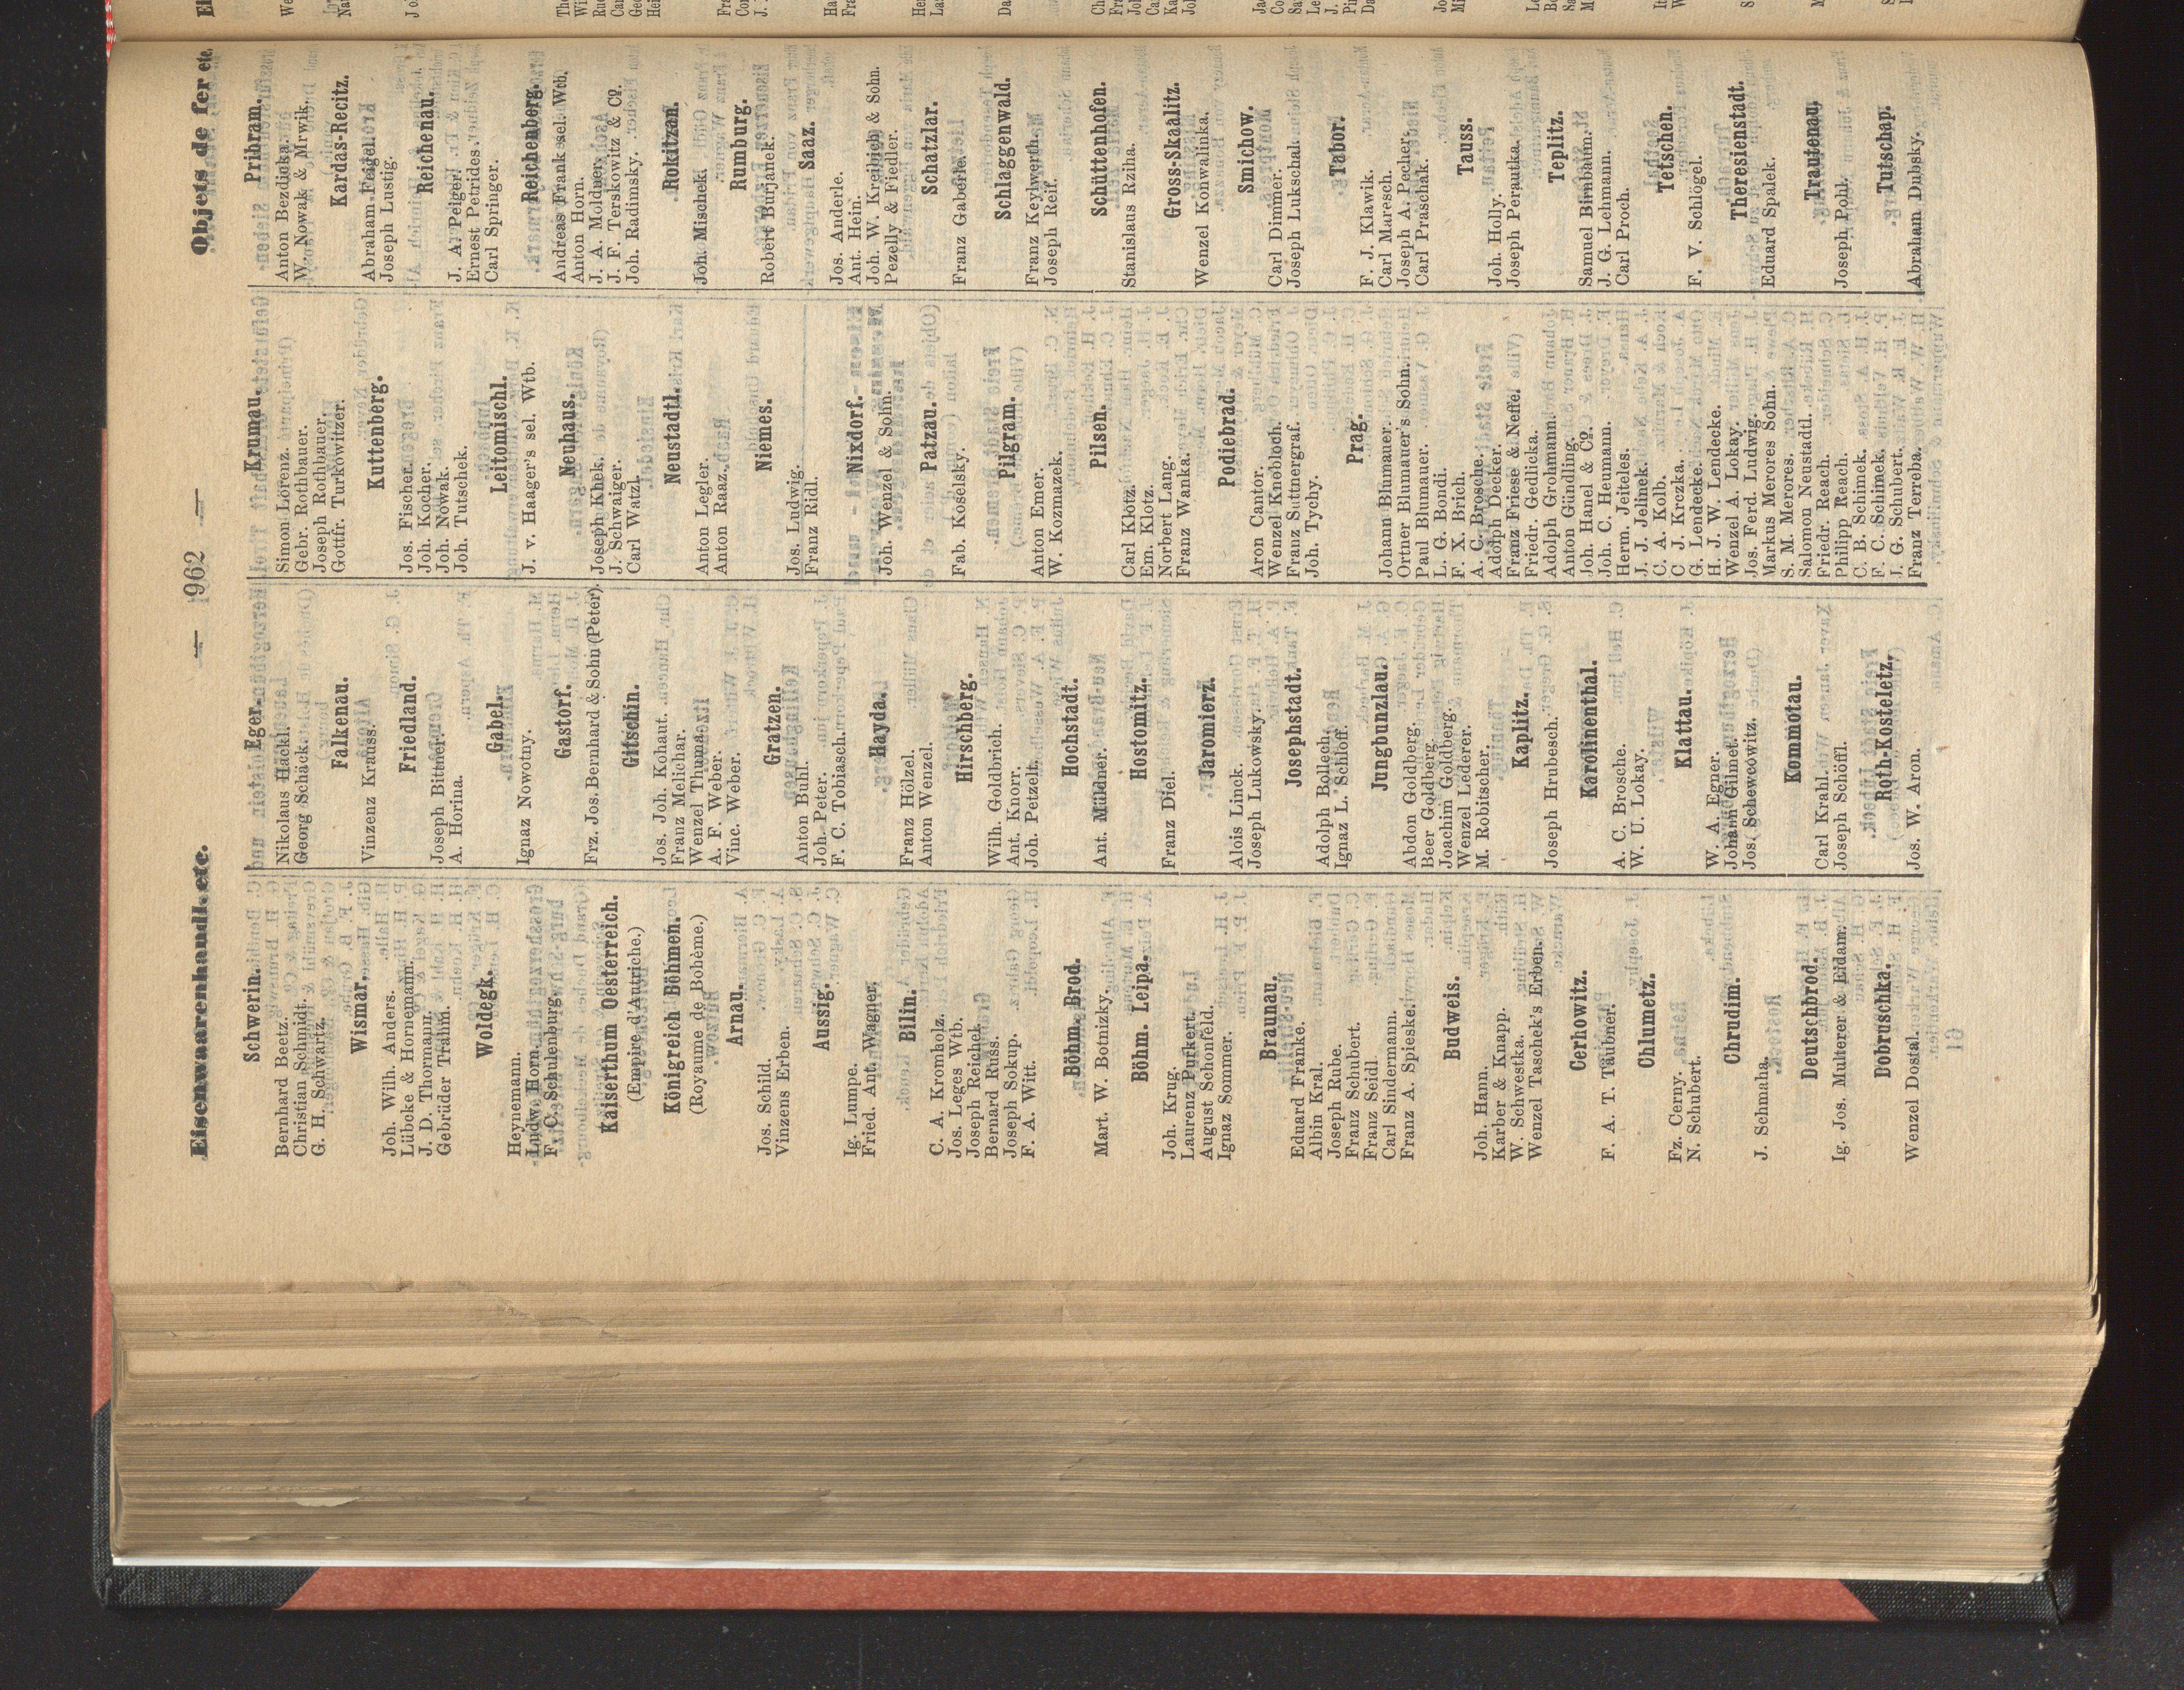 Eisenwaarenhandl. etc.
— 962 —
Objets de fer etc.
Schwerin.
Bernhard Beetz.
Christian Schmidt.
G. H. Schwartz.
Wismar.
Joh. Wilh. Anders.
Lübcke & Hornemann.
J. D. Thormann.
Gebrüder Trahm.
Woldegk.
Heynemann.
Ludw. Horn.
F. C. Schulenburg.
Kaiserthum Oesterreich.
(Empire d'Autriche.)
Königreich Böhmen.
(Royaume de Bohême.)
Arnau.
Jos. Schild.
Vinzens Erben.
Aussig.
Ig. Lumpe.
Fried. Ant. Wagner.
Bilin.
C. A. Kromholz.
Jos. Leges Wtb.
Joseph Reichel.
Bernard Russ.
Joseph Sokup.
F. A. Witt.
Böhm. Brod.
Mart. W. Botnizky.
Böhm. Leipa.
Joh. Krug.
Laurenz Purkert.
August Schönfeld.
Ignaz Sommer.
Braunau.
Eduard Franke.
Albin Kral.
Joseph Rube.
Franz Schubert.
Franz Seidl
Carl Sindermann.
Franz A. Spieske.
Budweis.
Joh. Hann.
Karber & Knapp.
W. Schwestka.
Wenzel Taschek's Erben.
Cerhowitz.
F. A. T. Täubner.
Chlumetz.
Fz. Cerny.
N. Schubert.
Chrudim.
J. Schmaha.
Deutschbrod.
Ig. Jos. Multerer & Eidam.
Dobruschka.
Wenzel Dostal.
Eger.
Nikolaus Häckl.
Georg Schäck.
Falkenau.
Vinzenz Krauss.
Friedland.
Joseph Bittner.
A. Horina.
Gabel.
Ignaz Nowotny.
Gastorf.
Frz. Jos. Bernhard & Sohn (Peter).
Gitschin.
Jos. Joh. Kohaut.
Franz Melichar.
Wenzel Thuma.
A. F. Weber.
Vinc. Weber.
Gratzen.
Anton Buhl.
Joh. Peter.
F. C. Tobiasch.
Hayda.
Franz Hölzel.
Anton Wenzel.
Hirschberg.
Wilh. Goldbrich.
Ant. Knorr.
Joh. Petzelt.
Hochstadt.
Ant. Müldner.
Hostomitz.
Franz Diel.
Jaromierz.
Alois Linck.
Joseph Lukowsky.
Josephstadt.
Adolph Bollech.
Ignaz L. Schloff.
Jungbunzlau.
Abdon Goldberg.
Beer Goldberg.
Joachim Goldberg.
Wenzel Lederer.
M. Robitscher.
Kaplitz.
Joseph Hrubesch.
Karolinenthal.
A. C. Brosche.
W. U. Lokay.
Klattau.
W. A. Egner.
Johann Gilmet.
Jos. Schewcowitz.
Kommotau.
Carl Krahl.
Joseph Schöffl.
Roth-Kosteletz.
Jos. W. Aron.
Krumau.
Simon Lörenz.
Gebr. Rothbauer.
Joseph Rothbauer.
Gottfr. Turkowitzer.
Kuttenberg.
Jos. Fischer.
Joh. Kocher.
Joh. Nowak.
Joh. Tutschek.
Leitomischl.
J. v. Haager's sel. Wtb.
Neuhaus.
Joseph Khek.
J. Schwaiger.
Carl Watzl.
Neustadtl.
Anton Legler.
Anton Raaz.
Niemes.
Jos. Ludwig.
Franz Ridl.
Nixdorf.
Joh. Wenzel & Sohn.
Patzau.
Fab. Koselsky.
Pilgram.
Anton Emer.
W. Kozmazek.
Pilsen.
Carl Klotz.
Em. Klotz.
Norbert Lang.
Franz Wanka.
Podiebrad.
Aron Cantor.
Wenzel Knobloch.
Franz Suttnergraf.
Joh. Tychy.
Prag.
Johann Blumauer.
Ortner Blumauer's Sohn.
Paul Blumauer.
L. G. Bondi.
F. X. Brich.
A. C. Brosche.
Adolph Decker.
Franz Friese & Neffe.
Friedr. Gedlicka.
Adolph Grohmann.
Anton Gündling.
Joh. Hanel & Co.
Joh. C. Heumann.
Herm. Jeiteles.
J. J. Jelinek.
C. A. Kolb.
C J. Krczka.
G. Lendecke.
H. J. W. Lendecke.
Wenzel A. Lokay.
Jos. Ferd. Ludwig.
Markus Merores Sohn.
S. M. Merores.
Salomon Neustadtl.
Friedr. Reach.
Philipp Reach.
C. B. Schimek.
F. C. Schimek.
J. G. Schubert.
Franz Terreba.
Pribram.
Anton Bezdicka.
W. Nowak & Mrwik.
Kardas-Recitz.
Abraham Feigel.
Joseph Lustig.
Reichenau.
J. A. Peiger.
Ernest Petrides.
Carl Springer.
Reichenberg.
Andreas Frank sel. Wtb.
Anton Horn.
J. A. Moldner.
J. F. Terskowitz & Co.
Joh. Radinsky.
Rokitzan.
Joh. Mischek.
Rumburg.
Robert Burjanek.
Saaz.
Jos. Anderle.
Ant. Hein.
Joh. W. Kreibich & Sohn.
Pezelly & Fiedler.
Schatzlar.
Franz Gaberle.
Schlaggenwald.
Franz Keylwerth.
Joseph Reif.
Schüttenhofen.
Stanislaus Rziha.
Gross-Skaalitz.
Wenzel Konwalinka.
Smichow.
Carl Dimmer.
Joseph Lukschal.
Tabor.
F. J. Klawik.
Carl Maresch.
Joseph A. Pecher.
Carl Praschak.
Tauss.
Joh. Holly.
Joseph Perautka.
Teplitz.
Samuel Birnbaum.
J. G. Lehmann.
Carl Proch.
Tetschen.
F. V. Schlögel.
Theresienstadt.
Eduard Spalek.
Trautenau.
Joseph Pohl.
Tutschap.
Abraham Dubsky.